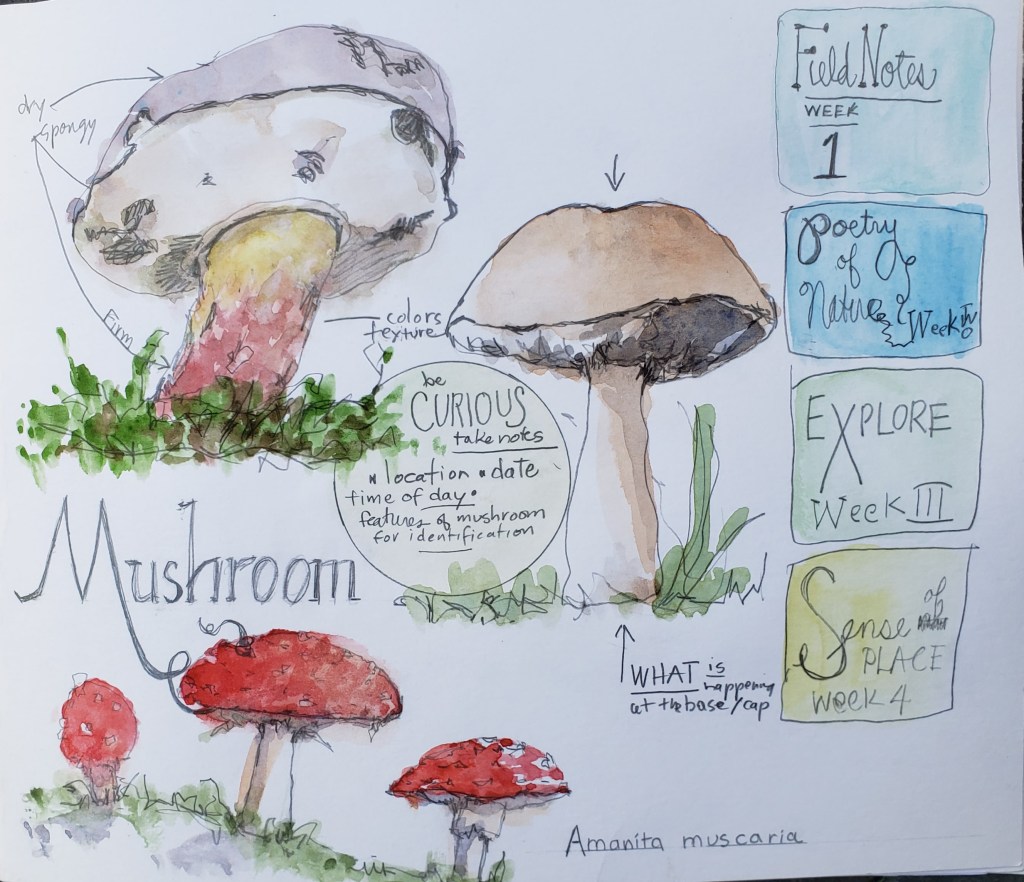 dry
spongy
Firm
colors
texture
be
CURIOUS
take notes
location • date
time of day •
features of mushroom
for identification
Mushroom
WHAT is
happening
at the base / cap
Amanita muscaria
Field Notes
WEEK
1
Poetry
of
Nature
Week
EXPLORE
Week III
Sense of
PLACE
Week 4